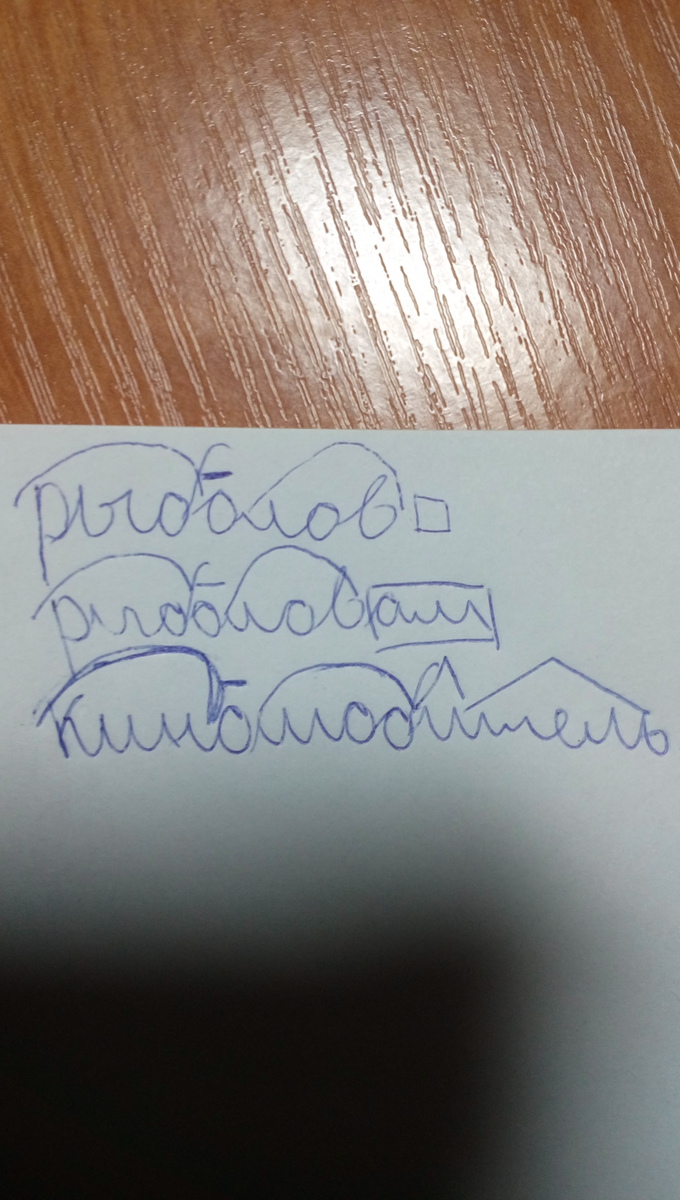 рыболов
рыболовам
кинолюбитель